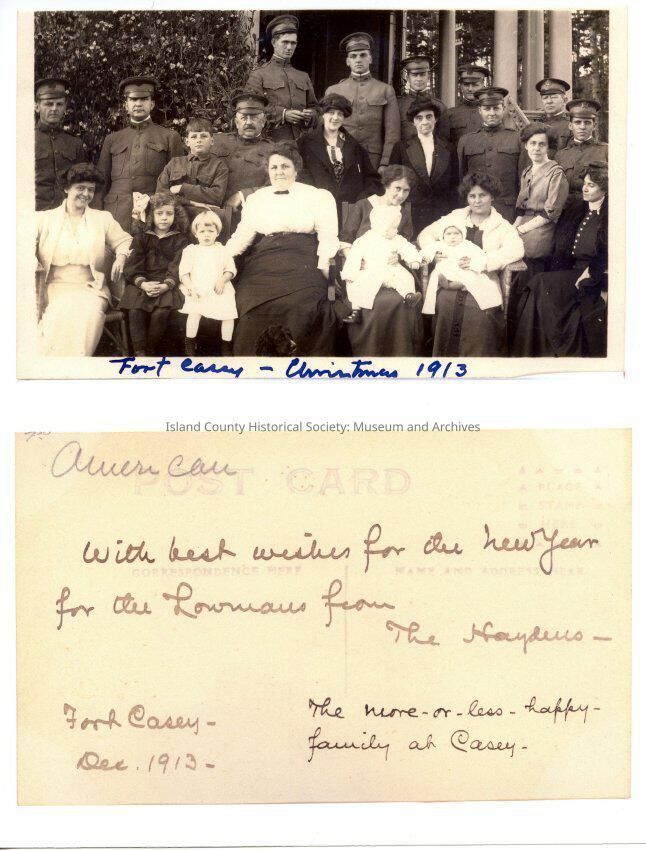 Fort Casey - Christmas 1913
Island County Historical Society: Museum and Archives
American
POST CARD
PLACE
STAMP
With best wishes for the New Year
CORRESPONDENCE HERE
NAME AND ADDRESS HERE
for the Lowmans from
The Haydens -
Fort Casey -
Dec. 1913 -
The more-or-less-happy-
family at Casey -